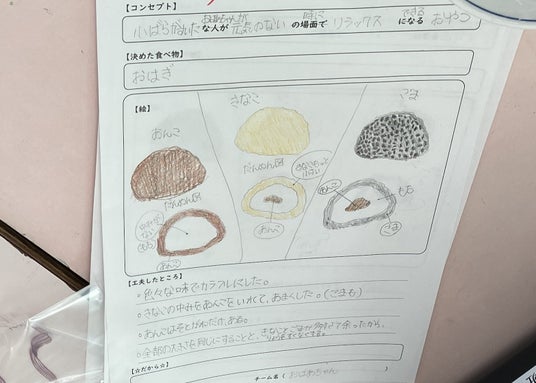 【コンセプト】
小ばらがすいた な人が 元気のない 時に の場面で リラックス できる になる おやつ
おばあちゃんが
【決めた食べ物】
おはぎ
【絵】
あんこ
きなこ
ごま
だんめん図
だんめん図
中は
ない
もち
あんこ
きなこ
あんこ
あんこ
もち
ごま
【工夫したところ】
・色々な味でカラフルにした。
・きなこの中みをあんこをいれて、あまくした。(ごまも)
・あんこはそとがわだけ、ある。
・全部の大きさを同じにすることと、きなことごまが
【☆だから☆】
チーム名( おばあちゃん